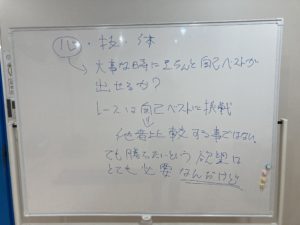 心・技・体
大事な時にきちんと自己ベストが
出せるか?
レースは自己ベストに挑戦
他者と上に勝つする事ではない
でも勝ちたいという欲望は
とても必要なんだけど